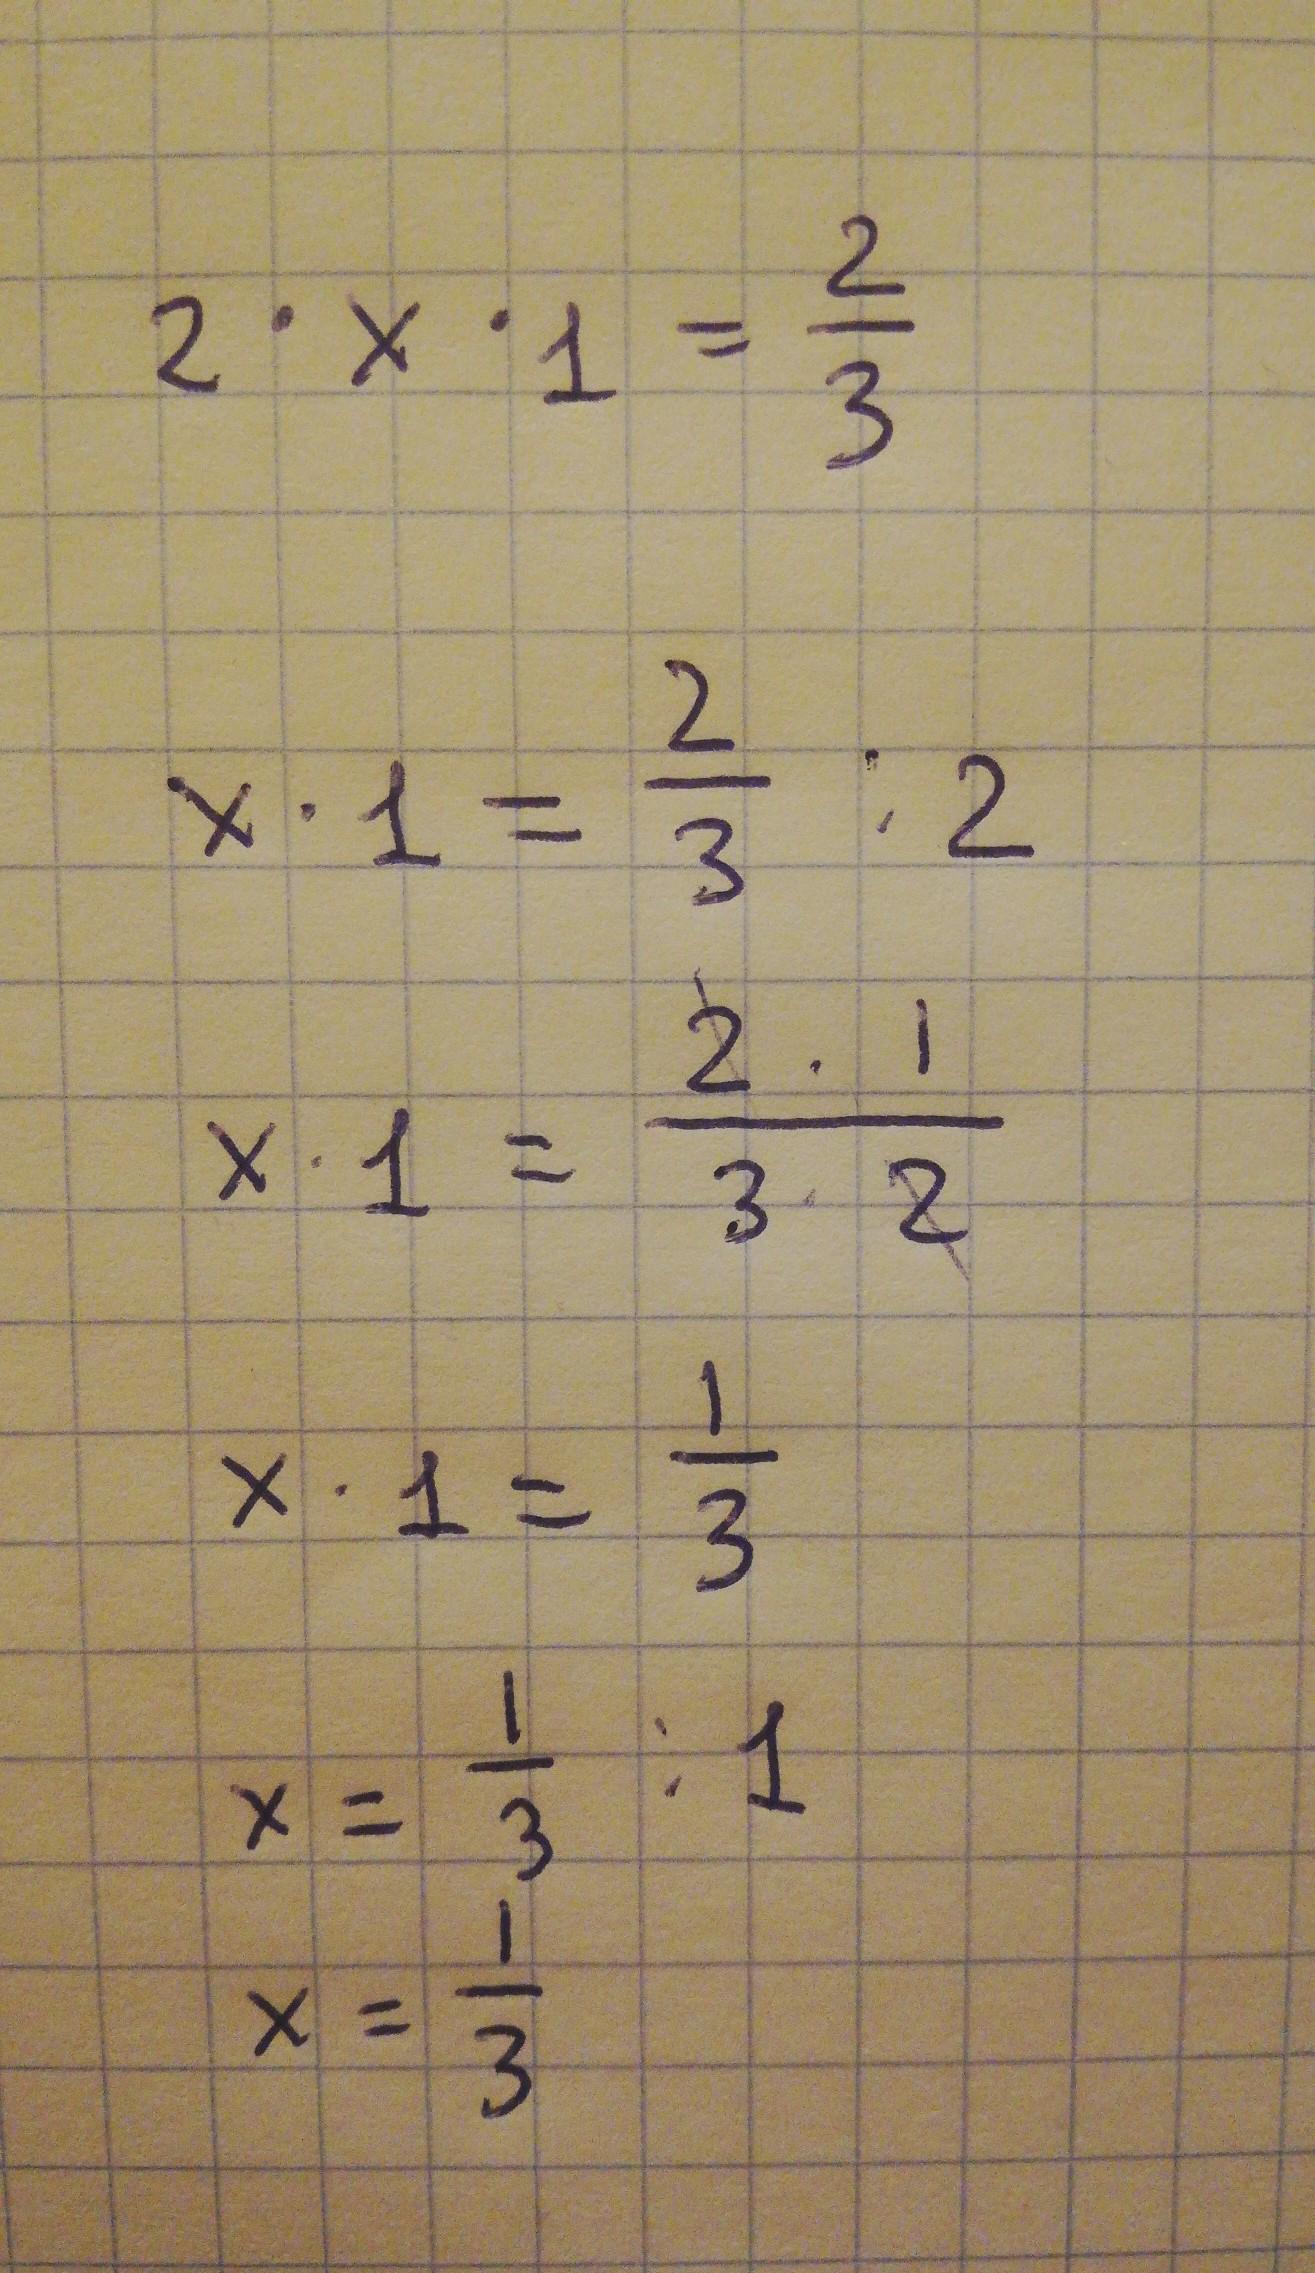 2 · x · 1 = 2/3
x · 1 = 2/3 : 2
x · 1 = 2 · 1 / 3 · 2
x · 1 = 1/3
x = 1/3 : 1
x = 1/3